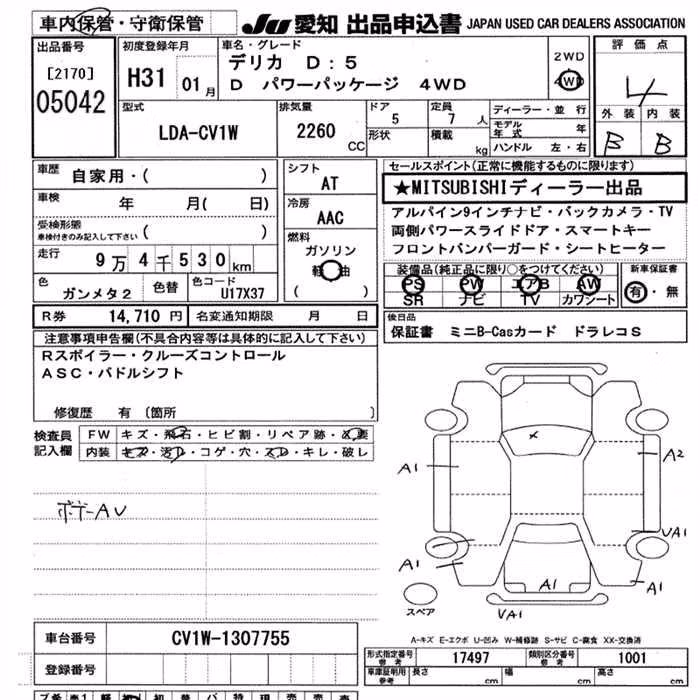 車内保管・守衛保管
JU 愛知 出品申込書 JAPAN USED CAR DEALERS ASSOCIATION
出品番号
[2170]
05042
初度登録年月
H31 01月
車名・グレード
デリカ D:5
D パワーパッケージ 4WD
2WD
4WD
評価点
4
外装 内装
B B
型式
LDA-CV1W
排気量
2260 CC
ドア
5
形状
定員
7 人
積載
kg
ディーラー・並行
モデル年式 年
ハンドル 左・右
車歴
自家用・( )
車検
年 月( 日)
受検形態
車検付きのみ記入して下さい ( )
走行
9万4千530km
色
ガンメタ2
色替
色コード
U17X37
シフト
AT
冷房
AAC
燃料
ガソリン
軽油
( )
セールスポイント(正常に機能するものに限ります)
★MITSUBISHIディーラー出品
アルパイン9インチナビ・バックカメラ・TV
両側パワースライドドア・スマートキー
フロントバンパーガード・シートヒーター
装備品(純正品に限り○をつけてください)
PS PW エアB AW
SR ナビ TV カワシート
新車保証書
有・無
R券 14,710円 名変通知期限 月 日
後日品
保証書 ミニB-Casカード ドラレコS
注意事項申告欄(不具合内容等は具体的に記入して下さい)
Rスポイラー・クルーズコントロール
ASC・パドルシフト
修復歴 有 〔箇所 〕
検査員
記入欄
FW キズ・飛石・ヒビ割・リペア跡・必要
内装 キズ・汚レ・コゲ・穴・スレ・キレ・破レ
ボデーAU
×
A1
A2
UA1
A1
A1
A1
UA1
スペア
A-キズ E-エクボ U-凹み W-補修跡 S-サビ C-腐食 XX-交換済
車台番号 CV1W-1307755
登録番号
形式指定番号 参考 17497 類別区分番号 参考 1001
車庫証明用 参考 長さ cm 幅 cm 高さ cm